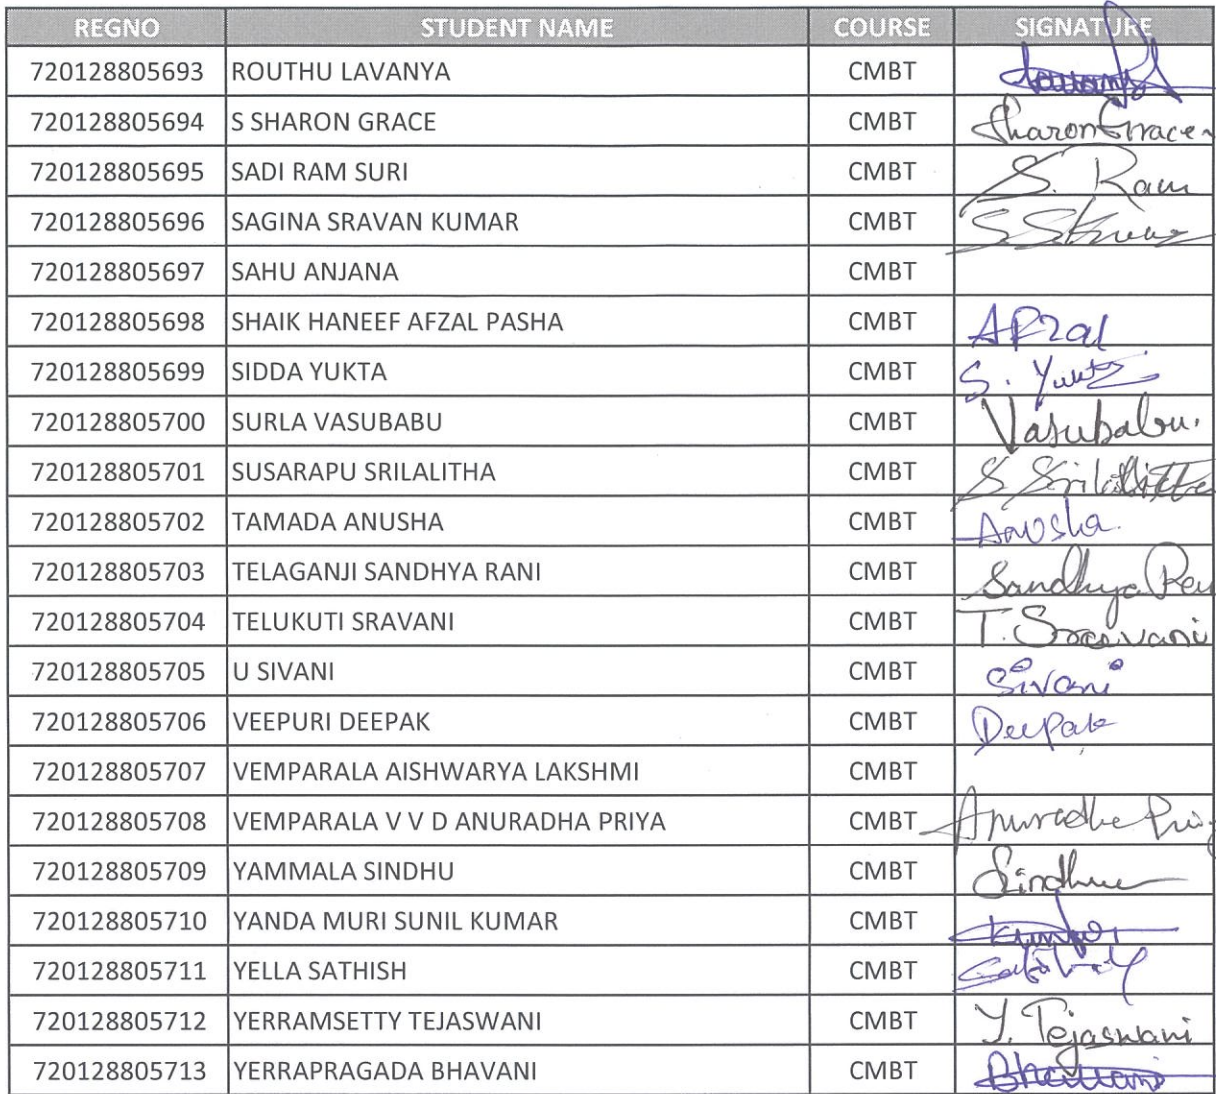 REGNO STUDENT NAME COURSE SIGNATURE
720128805693 ROUTHU LAVANYA CMBT
720128805694 S SHARON GRACE CMBT Sharon Grace
720128805695 SADI RAM SURI CMBT S. Ram
720128805696 SAGINA SRAVAN KUMAR CMBT
720128805697 SAHU ANJANA CMBT
720128805698 SHAIK HANEEF AFZAL PASHA CMBT Afzal
720128805699 SIDDA YUKTA CMBT S. Yukta
720128805700 SURLA VASUBABU CMBT Vasubabu.
720128805701 SUSARAPU SRILALITHA CMBT S Srilalitha
720128805702 TAMADA ANUSHA CMBT Anusha.
720128805703 TELAGANJI SANDHYA RANI CMBT Sandhya
720128805704 TELUKUTI SRAVANI CMBT T. Sravani
720128805705 U SIVANI CMBT Sivani
720128805706 VEEPURI DEEPAK CMBT Deepak
720128805707 VEMPARALA AISHWARYA LAKSHMI CMBT
720128805708 VEMPARALA V V D ANURADHA PRIYA CMBT Anuradha
720128805709 YAMMALA SINDHU CMBT Sindhu
720128805710 YANDA MURI SUNIL KUMAR CMBT
720128805711 YELLA SATHISH CMBT
720128805712 YERRAMSETTY TEJASWANI CMBT Y. Tejaswani
720128805713 YERRAPRAGADA BHAVANI CMBT Bhavani